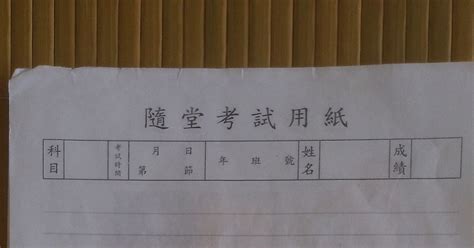 隨堂考試用紙
科目 考試時間 月 日 第 節 年 班 號 姓名 成績